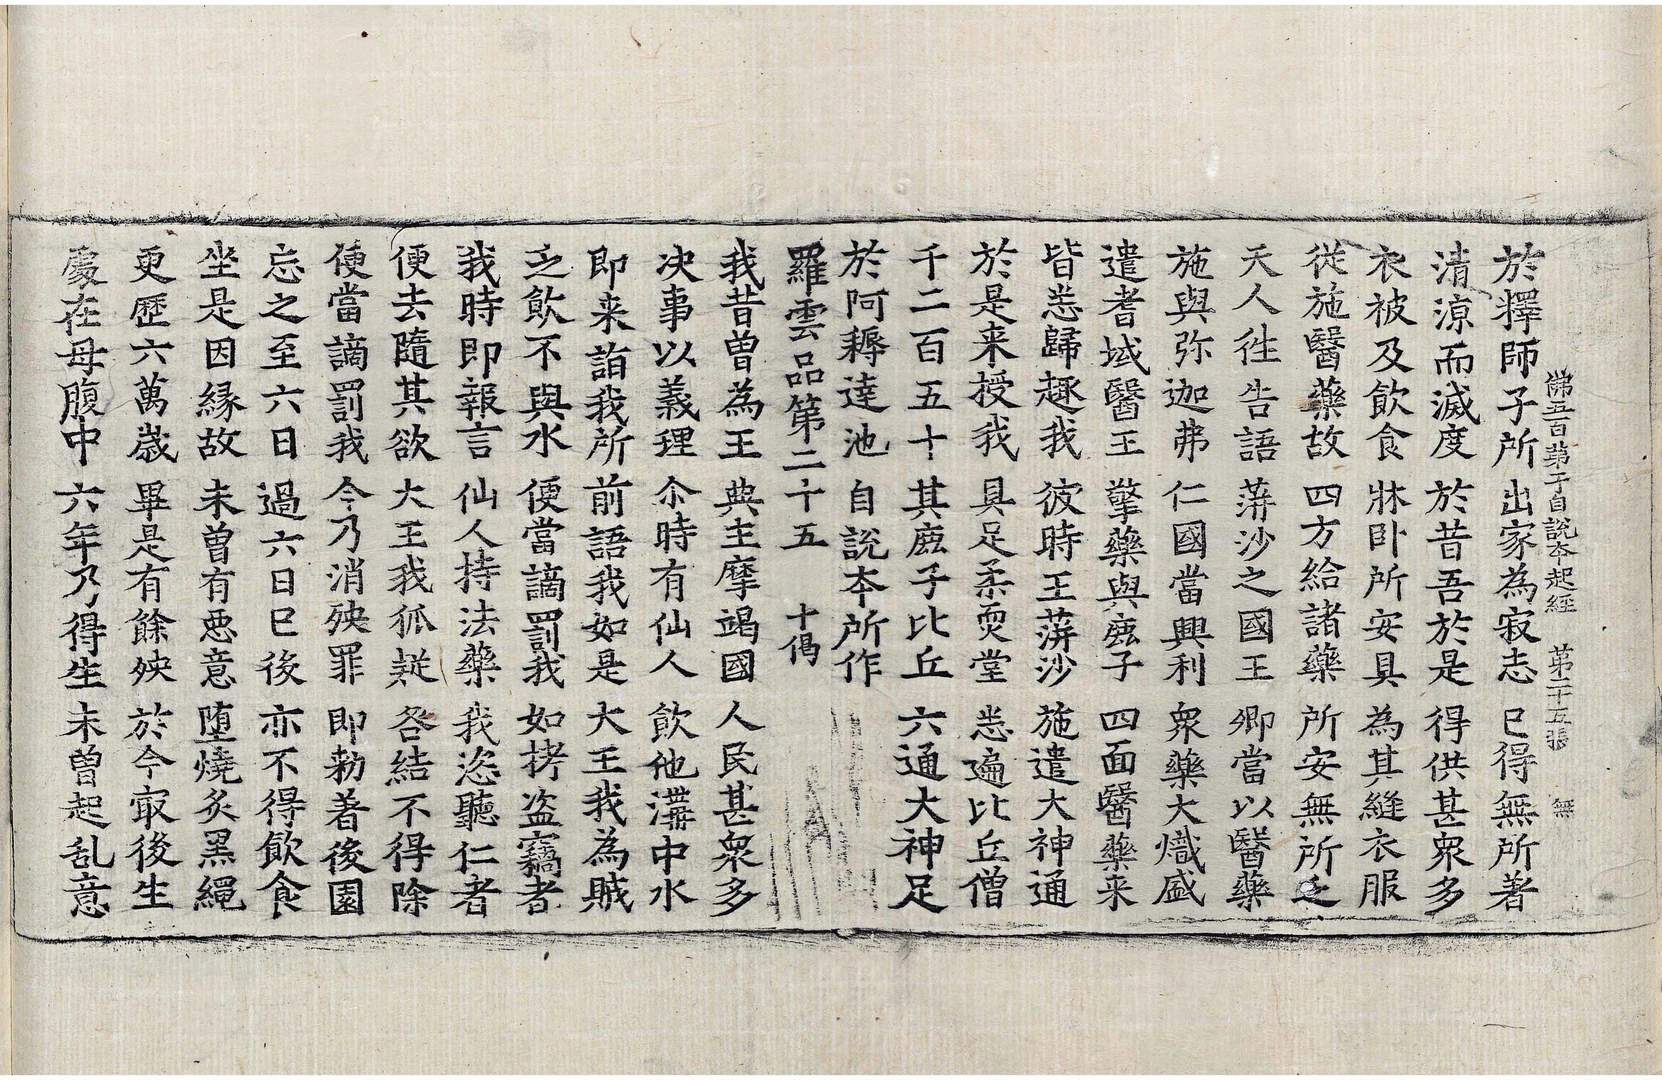 佛五百弟子自說本起經 第二十五張 無
於釋師子所出家為寂志已得無所著
清涼而滅度於昔吾於是得供甚衆多
衣被及飲食牀卧所安具為其縫衣服
従施醫藥故四方給諸藥所安無所乏
天人往告語蓱沙之國王卿當以醫藥
施與弥迦弗仁國當興利衆藥大熾盛
遣耆域醫王擎藥與麁子四面醫藥来
皆悉歸趣我彼時王蓱沙施遣大神通
於是来授我具足柔耎堂悉遍比丘僧
千二百五十其麁子比丘六通大神足
於阿耨達池自說本所作
羅雲品第二十五 十偈
我昔曾為王典主摩竭國人民甚衆多
决事以義理尒時有仙人飲他溝中水
即来詣我所前語我如是大王我為賊
乏飲不與水便當謫罰我如拷盗竊者
我時即報言仙人持法藥我恣聽仁者
便去隨其欲大王我狐疑咎結不得除
便當謫罰我今乃消殃罪即勑著後園
忘之至六日過六日已後亦不得飲食
坐是因縁故未曾有恶意墮燒炙黑繩
更歷六萬歲畢是有餘殃於今㝡後生
處在母腹中六年乃得生未曾起乱意